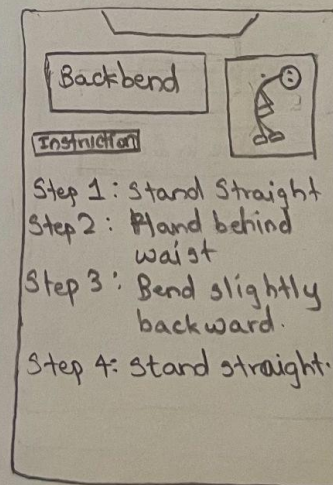 Backbend
Instruction
Step 1: Stand Straight
Step 2: Hand behind
waist
Step 3: Bend slightly
backward.
Step 4: Stand straight.